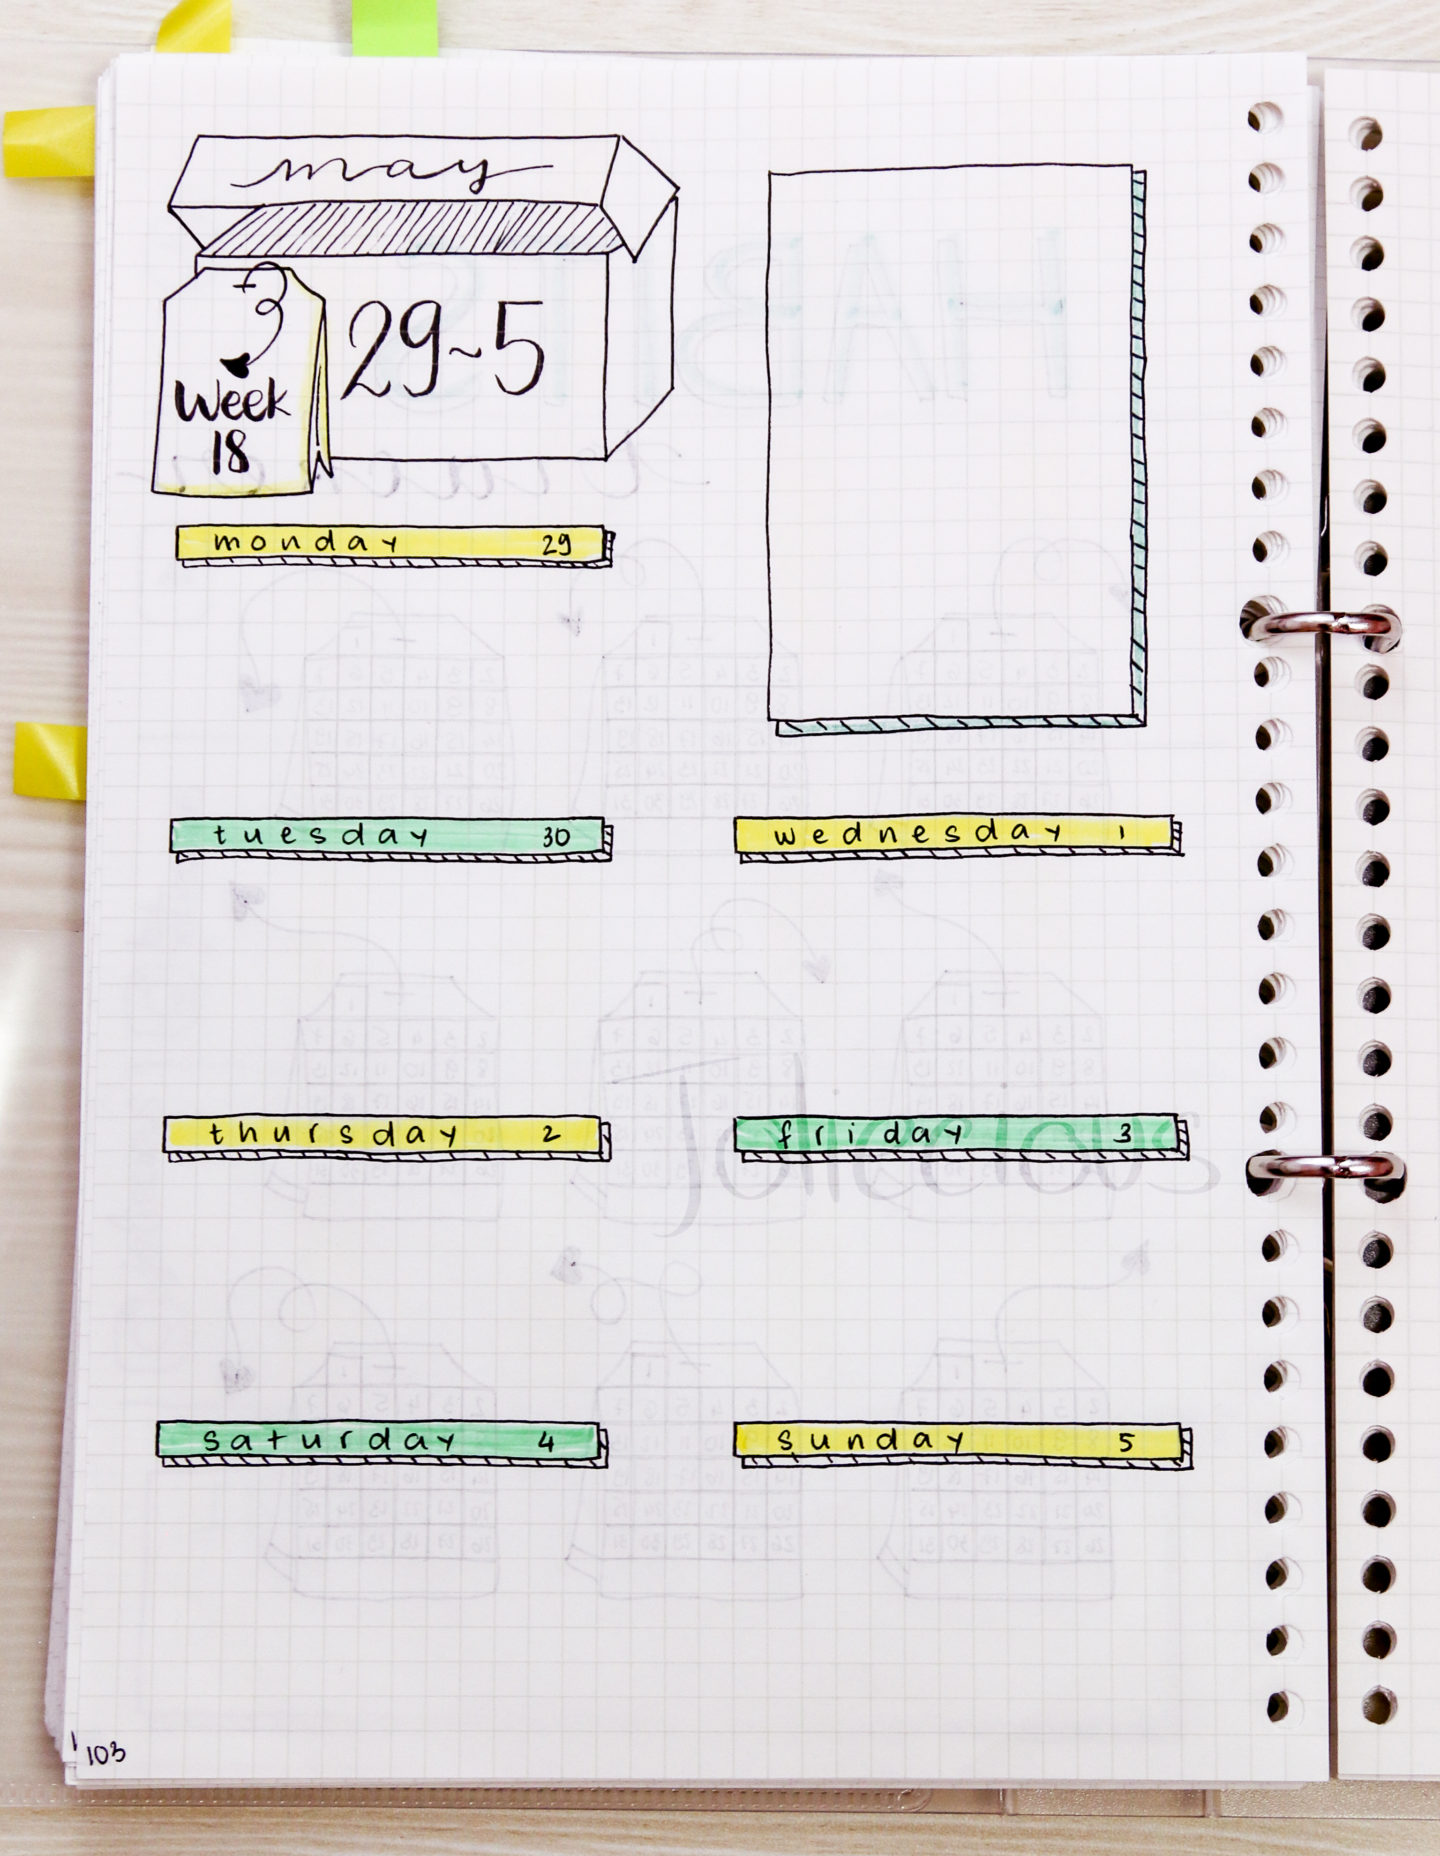 may
29~5
Week
18
monday 29
tuesday 30
wednesday 1
thursday 2
friday 3
Jolicious
saturday 4
sunday 5
103